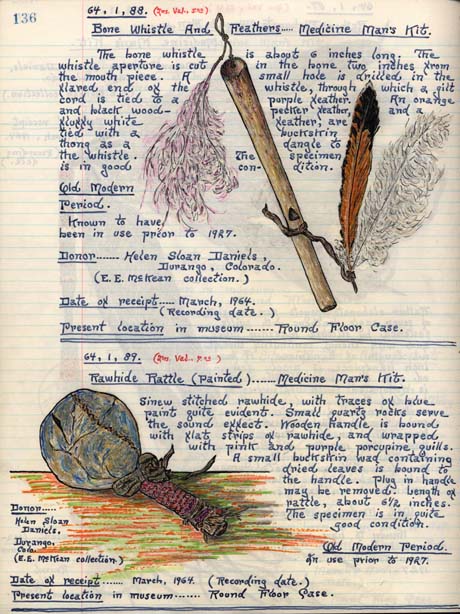 136
64.1.88. (Ins. Val.,
Bone Whistle And Feathers.... Medicine Man's Kit.
The bone whistle is about 6 inches long. The
whistle aperture is cut in the bone two inches from
the mouth piece. A small hole is drilled in the
flared end of the whistle, through which a gilt
cord is tied to a purple feather. An orange
and black wood- pecker feather, and a
fluffy white feather, are
tied with a buckskin
thong as a dangle to
the whistle. The specimen
is in good con- dition.
Old Modern
Period.
Known to have
been in use prior to 1927.
Donor...... Helen Sloan Daniels,
Durango, Colorado.
(E.E. McKean collection.)
Date of receipt..... March, 1964.
(Recording date.)
Present location in museum....... Round Floor Case.
64.1.89. (Ins. Val.,
Rawhide Rattle (Painted)...... Medicine Man's Kit.
Sinew stitched rawhide, with traces of blue
paint quite evident. Small quartz rocks serve
the sound effect. Wooden handle is bound
with flat strips of rawhide, and wrapped
with pink and purple porcupine quills.
A small buckskin wad containing
dried leaves is bound to
the handle. Plug in handle
may be removed. Length of
rattle, about 6½ inches.
The specimen is in quite
good condition.
Donor.....
Helen Sloan
Daniels.
Durango,
Colo.
(E.E. McKean collection.)
Old Modern Period.
In use prior to 1927.
Date of receipt...... March, 1964. (Recording date.)
Present location in museum....... Round Floor Case.